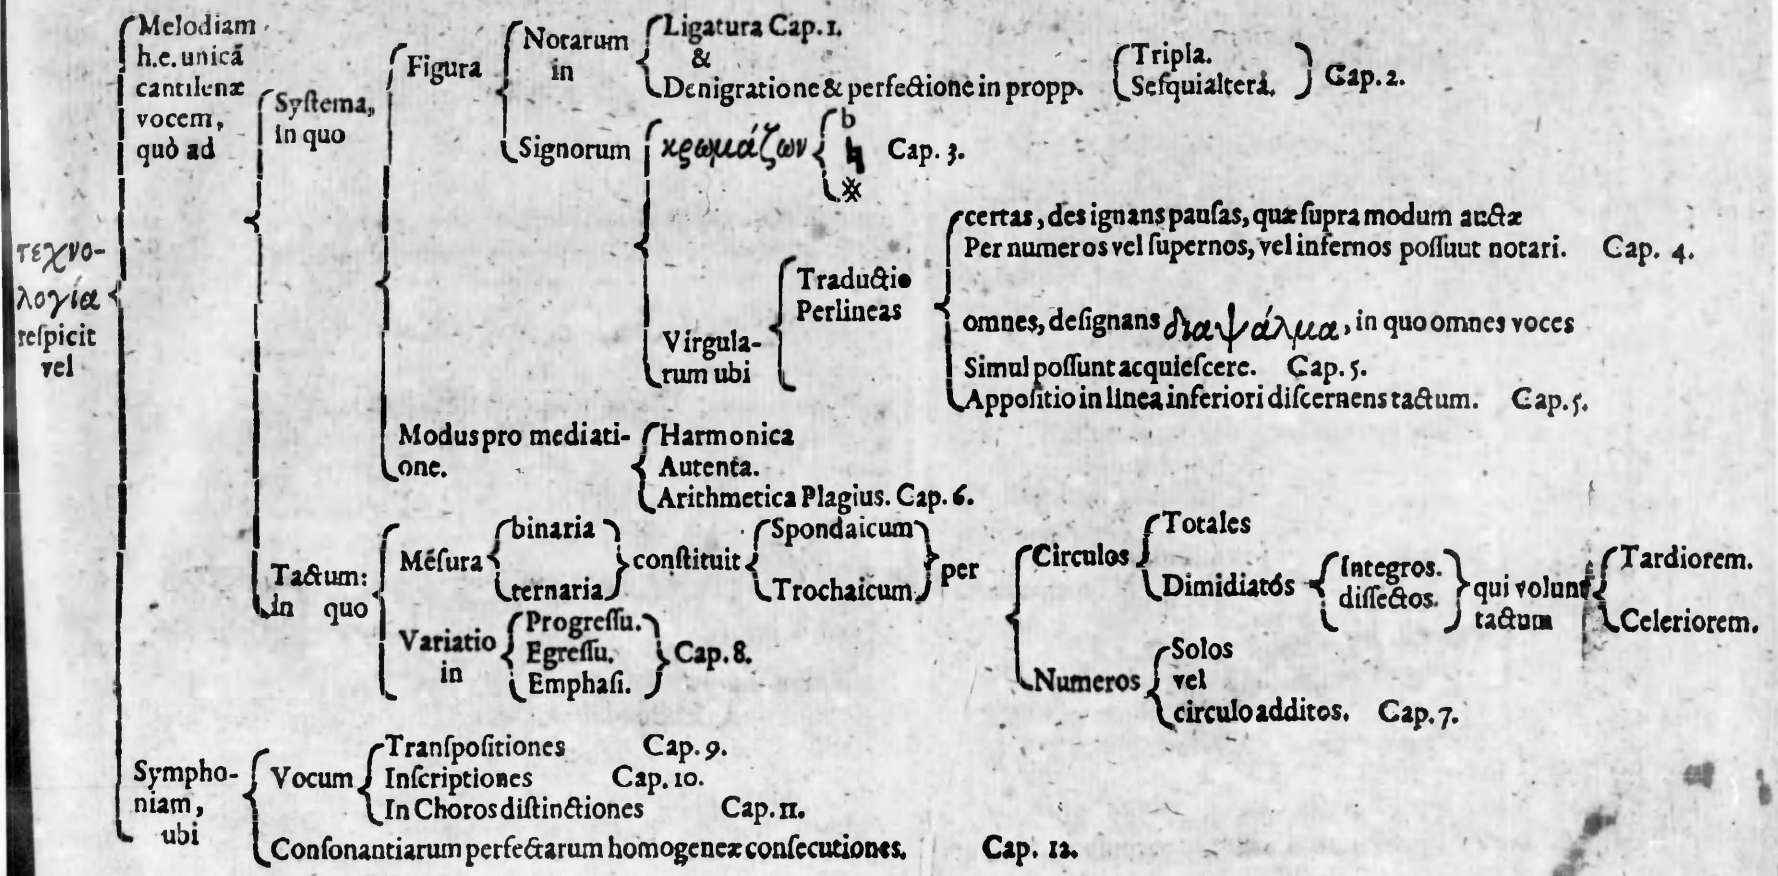 τεχνο-
λογία
reſpicit
vel
Melodiam
h.e. unicã
cantilenæ
vocem,
quò ad
Syſtema,
in quo
Figura
Notarum
in
Ligatura Cap. 1.
&
Denigratione & perfectione in propp.
Tripla.
Seſquialterâ.
Cap. 2.
Signorum
χρωμάζων
b
♮
※
Cap. 3.
Virgula-
rum ubi
Traductio
Perlineas
certas, deſignans pauſas, quæ ſupra modum auctæ
Per numeros vel ſupernos, vel infernos poſſuut notari. Cap. 4.
omnes, deſignans διαψάλμα, in quo omnes voces
Simul poſſunt acquieſcere. Cap. 5.
Appoſitio in linea inferiori diſcernens tactum. Cap. 5.
Modus pro mediati-
one.
Harmonica
Autenta.
Arithmetica Plagius. Cap. 6.
Tactum:
in quo
Méſura
binaria
ternaria
conſtituit
Spondaicum
Trochaicum
per
Circulos
Totales
Dimidiatós
Integros.
diſſectos.
qui volunt
tactum
Tardiorem.
Celeriorem.
Numeros
Solos
vel
circulo additos. Cap. 7.
Variatio
in
Progreſſu.
Egreſſu.
Emphaſi.
Cap. 8.
Sympho-
niam,
ubi
Vocum
Tranſpoſitiones Cap. 9.
Inſcriptiones Cap. 10.
In Choros diſtinctiones Cap. 11.
Conſonantiarum perfectarum homogeneæ conſecutiones. Cap. 12.